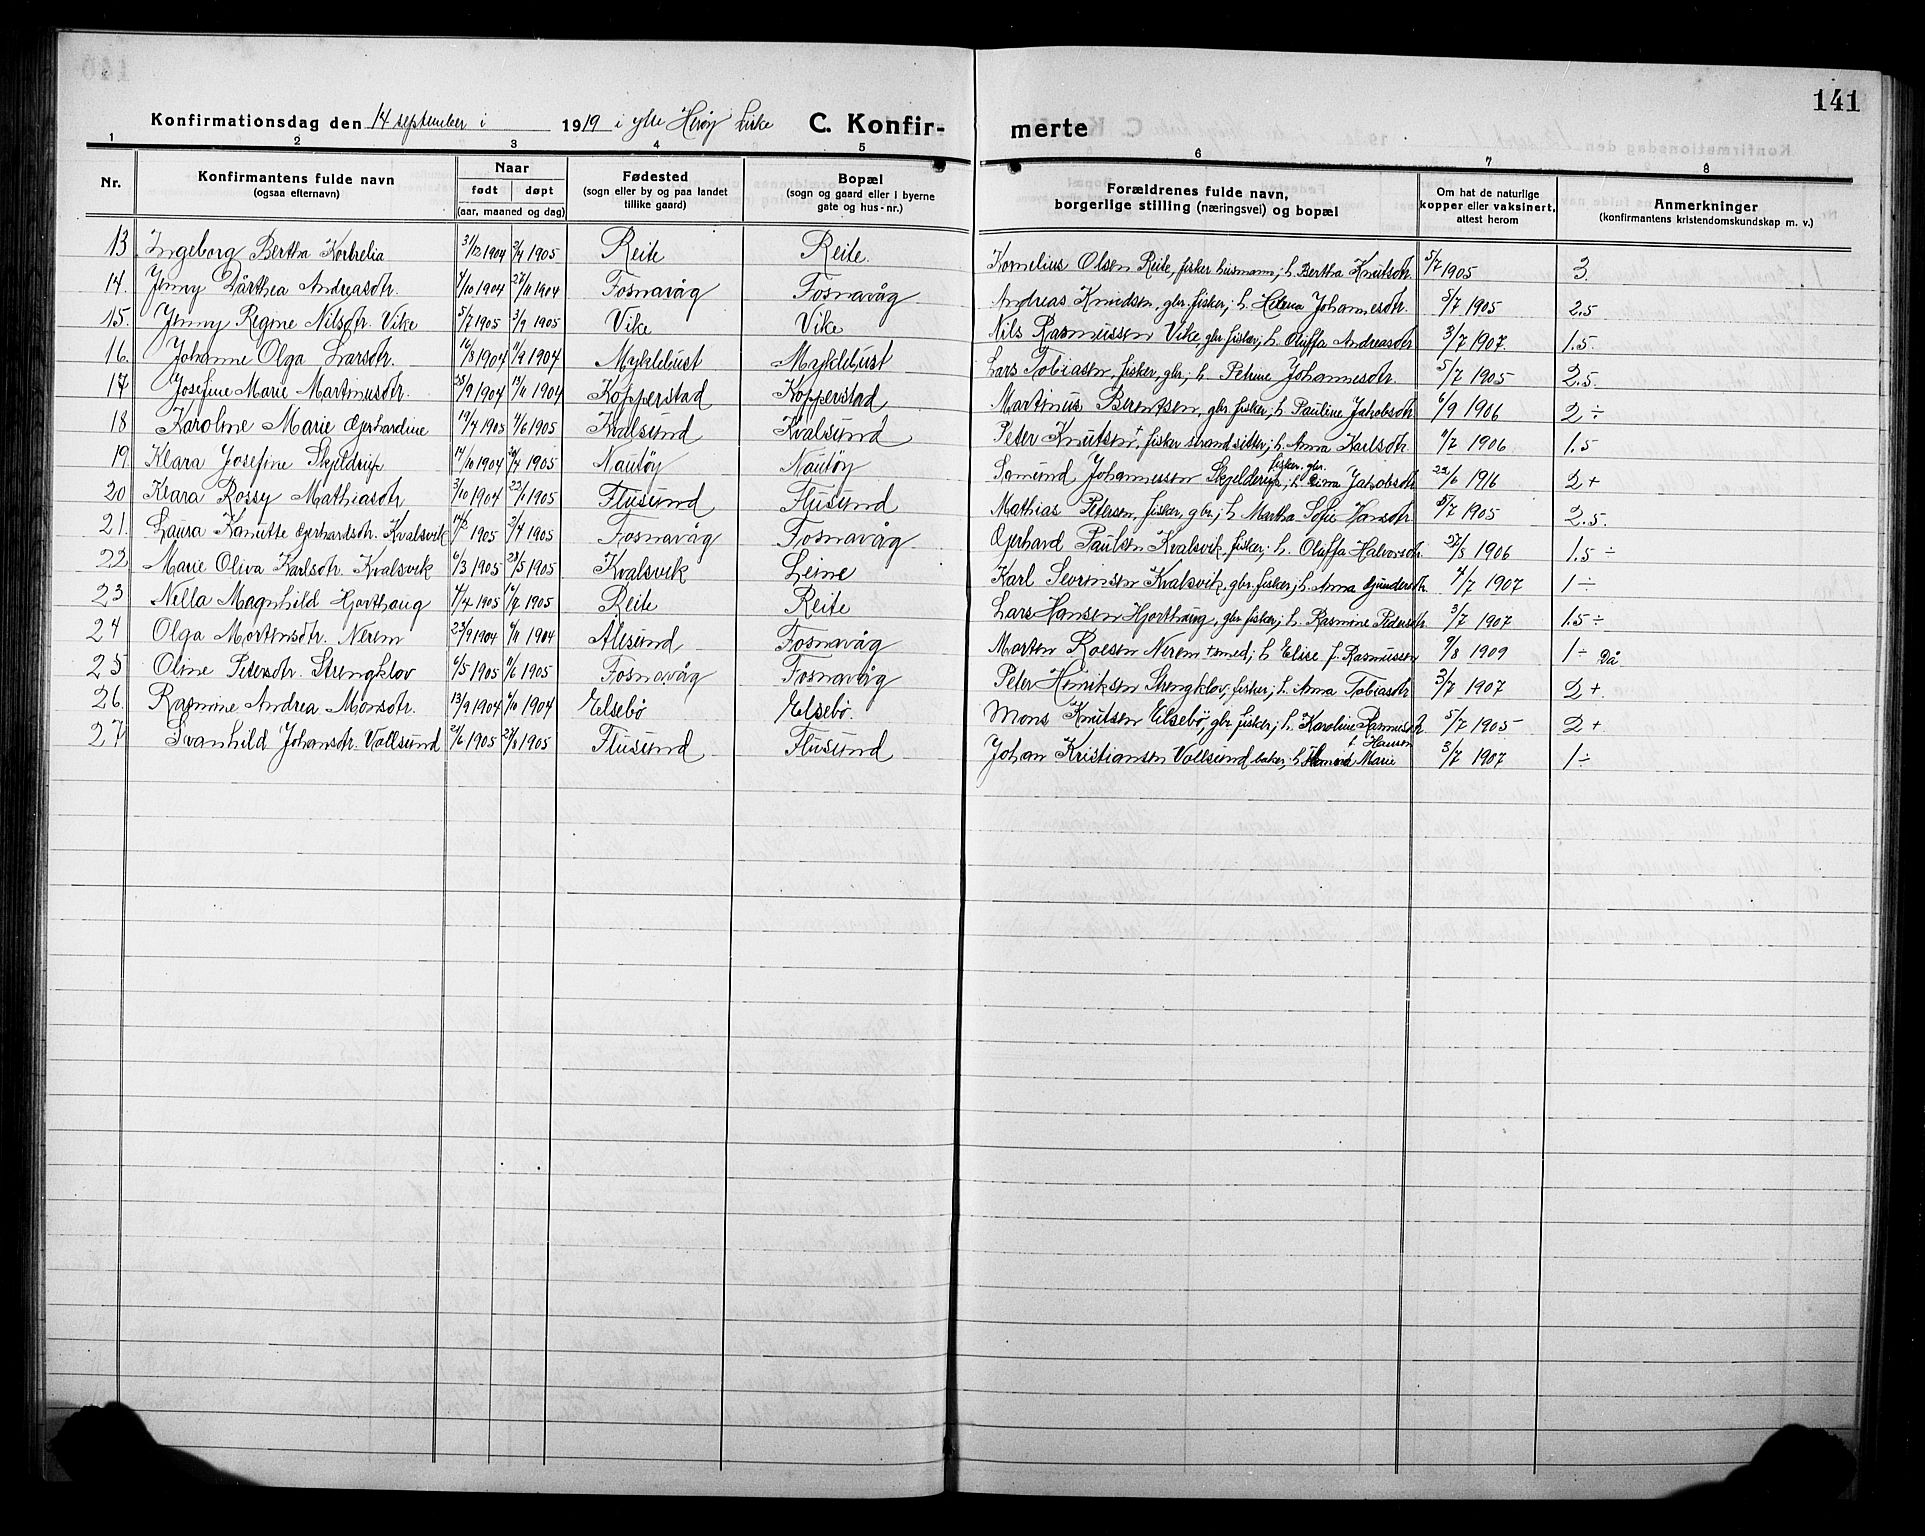 141
Konfirmationsdag den 14 september i 1919 i ytre Herøy kirke C. Konfir- merte
1 2 3 4 5 6 7 8
Nr. Konfirmantens fulde navn (ogsaa efternavn) Naar født døpt (aar, maaned og dag) Fødested (sogn eller by og paa landet tillike gaard) Bopæl (sogn og gaard eller i byerne gate og hus-nr.) Forældrenes fulde navn, borgerlige stilling (næringsvei) og bopæl Om hat de naturlige kopper eller vaksinert, attest herom Anmerkninger (konfirmantens kristendomskundskap m. v.)
13 Ingeborg Bertha Kornelia 31/12 1904 2/4 1905 Reite Reite. Kornelius Olsen Reite, fisker husmann; h. Bertha Knutsdtr. 5/7 1905 3.
14. Jenny Dårthea Andreasdtr. 4/10 1904 27/11 1904 Fosnavåg Fosnavåg Andreas Knudsen, gbr. fisker; h. Helena Johannesdtr 5/7 1905 2.5
15. Jenny Regine Nilsdtr. Vike 5/7 1905 3/9 1905 Vike Vike Nils Rasmussen Vike, gbr. fisker; h. Oluffa Andreasdtr 3/7 1907. 1.5.
16. Johanne Olga Larsdtr. 16/8 1904 11/9 1904 Myklebust Myklebust Lars Tobiasen, fisker, gbr; h. Petrine Johannesdtr. 5/7 1905 2.5.
17 Josefine Marie Martinusdtr. 25/9 1904 13/11 1904 Kopperstad Kopperstad Martinus Berentsen, gbr. fisker; h. Pauline Jakobsdtr 6/9 1906 2 ÷
18 Karoline Marie Gjerhardine 19/4 1905 11/6 1905 Kvalsund Kvalsund Peter Knutsen +, fisker strandsitter; h. Anna Karlsdtr. 11/7 1906 1.5
19. Klara Josefine Skjeldrup 14/10 1904 24/4 1905 Nautøy Nautøy Somund Johannessen Skjelderup, fisker. gbr. h. Lina Jakobsdtr 22/6 1916 2 +
20 Klara Rossy Mathiasdtr 3/10 1904 22/1 1905 Flusund Flusund Mathias Petersen, fisker, gbr.; h. Martha Sofie Hansdtr 5/7 1905 2.5.
21. Laura Kanutte Gjerhardsdtr. Kvalsvik 14/2 1905 2/4 1905 Fosnavåg Fosnavåg. Gjerhard Paulsen Kvalsvik, fisker; h. Oluffa Halvorsdtr. 27/8 1906 1.5 ÷
22 Marie Oliva Karlsdtr. Kvalsvik 6/3 1905 28/5 1905 Kvalsvik Leine Karl Severinsen Kvalsvik, gbr. fisker; h. Anna Gundersdtr. 4/7 1907 1 ÷
23 Nella Magnhild Hjorthaug 4/4 1905 16/7 1905 Reite Reite Lars Hansen Hjorthaug, gbr. fisker; h. Rasmine Pedersdtr 3/7 1907 1.5 ÷
24 Olga Mortensdtr. Nerem 23/9 1904 6/11 1904 Alesund Fosnavåg Morten Roesen Nerem smed; h. Elise f. Rasmussen 9/8 1909 1 ÷ Då
25 Oline Petersdtr. Strengklov 6/5 1905 11/6 1905 Fosnavåg Fosnavåg Peter Henriksen Strengklov, fisker; h. Anna Tobiasdtr 3/7 1907 2 +.
26. Rasmine Andrea Monsdtr. 13/9 1904 6/11 1904 Elsebø Elsebø. Mons Knutsen Elsebø, gbr. fisker; h. Karoline Rasmusdtr 5/7 1905 2 +
27 Svanhild Johansdtr. Vollsund 21/6 1905 27/8 1905 Flusund Flusund Johan Kristiansen Vollsund baker; h. Marie f. Hansen 3/7 1907 1 ÷